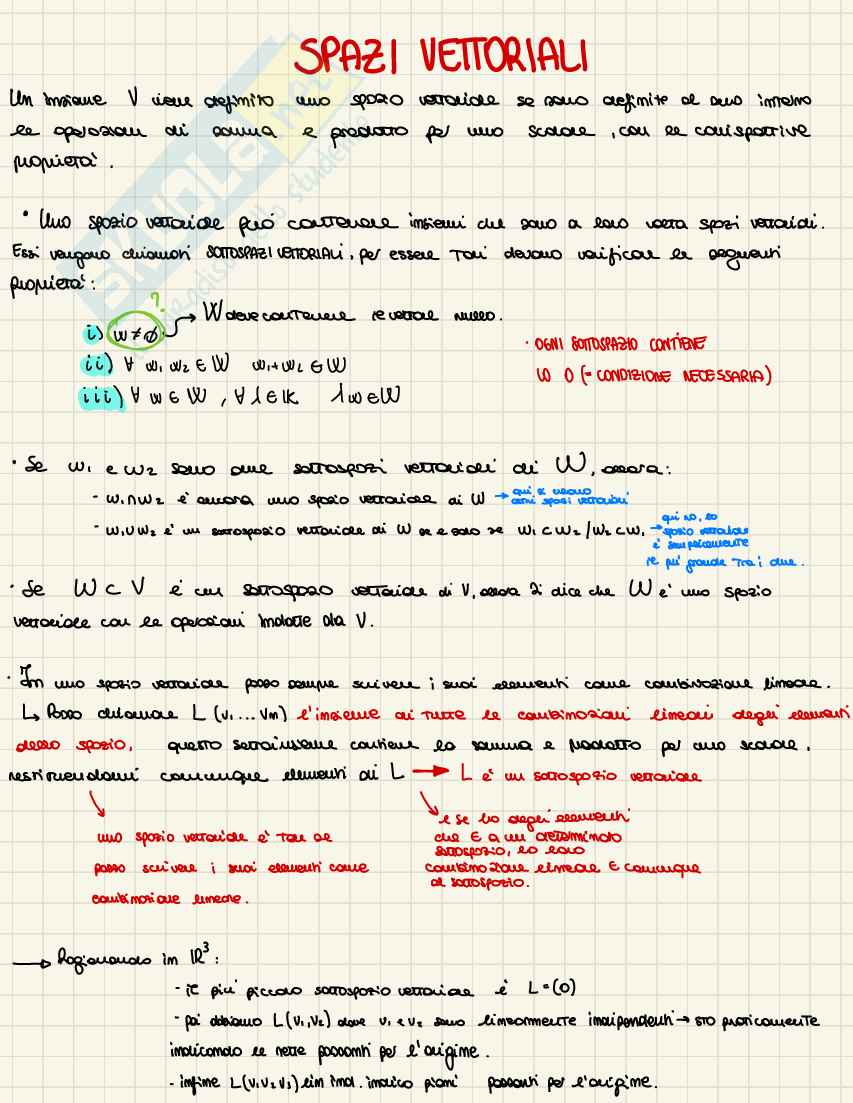 SPAZI VETTORIALI
Un insieme V viene definito uno spazio vettoriale se sono definite al suo interno
le operazioni di somma e prodotto per uno scalare, con le corrispettive
proprietà.
• Uno spazio vettoriale può contenere insiemi che sono a loro volta spazi vettoriali.
Essi vengono chiamati SOTTOSPAZI VETTORIALI, per essere tali devono verificare le seguenti
proprietà:
?
i) W ≠ ∅ → W deve contenere il vettore nullo.
ii) ∀ w₁ w₂ ∈ W w₁+w₂ ∈ W
iii) ∀ w ∈ W, ∀ λ ∈ K λw ∈ W
· OGNI SOTTOSPAZIO CONTIENE
LO 0 (= CONDIZIONE NECESSARIA)
· Se W₁ e W₂ sono due sottospazi vettoriali di W, allora:
- W₁∩W₂ è ancora uno spazio vettoriale di W → qui si
spazi vettoriali
- W₁∪W₂ è un sottospazio vettoriale di W se e solo se W₁⊂W₂/W₂⊂W₁ → qui no, lo
spazio vettoriale
è semplicemente
il più grande tra i due.
· Se W ⊂ V è un sottospazio vettoriale di V, allora si dice che W è uno spazio
vettoriale con le operazioni indotte da V.
· In uno spazio vettoriale posso sempre scrivere i suoi elementi come combinazione lineare.
↳ Posso chiamare L (v₁...vm) l'insieme di tutte le combinazioni lineari degli elementi
dello spazio, questo sottoinsieme contiene la somma e prodotto per uno scalare,
restituendomi comunque elementi di L → L è un sottospazio vettoriale
uno spazio vettoriale è tale se
posso scrivere i suoi elementi come
combinazione lineare.
e se ho degli elementi
che ∈ a un determinato
sottospazio, la loro
combinazione lineare ∈ comunque
al sottospazio.
→ Ragionando in ℝ³:
- il più piccolo sottospazio vettoriale è L=(0)
- poi abbiamo L(v₁,v₂) dove v₁ e v₂ sono linearmente indipendenti → sto praticamente
indicando le rette passanti per l'origine.
- infine L(v₁v₂v₃) lin ind. indico piani passanti per l'origine.